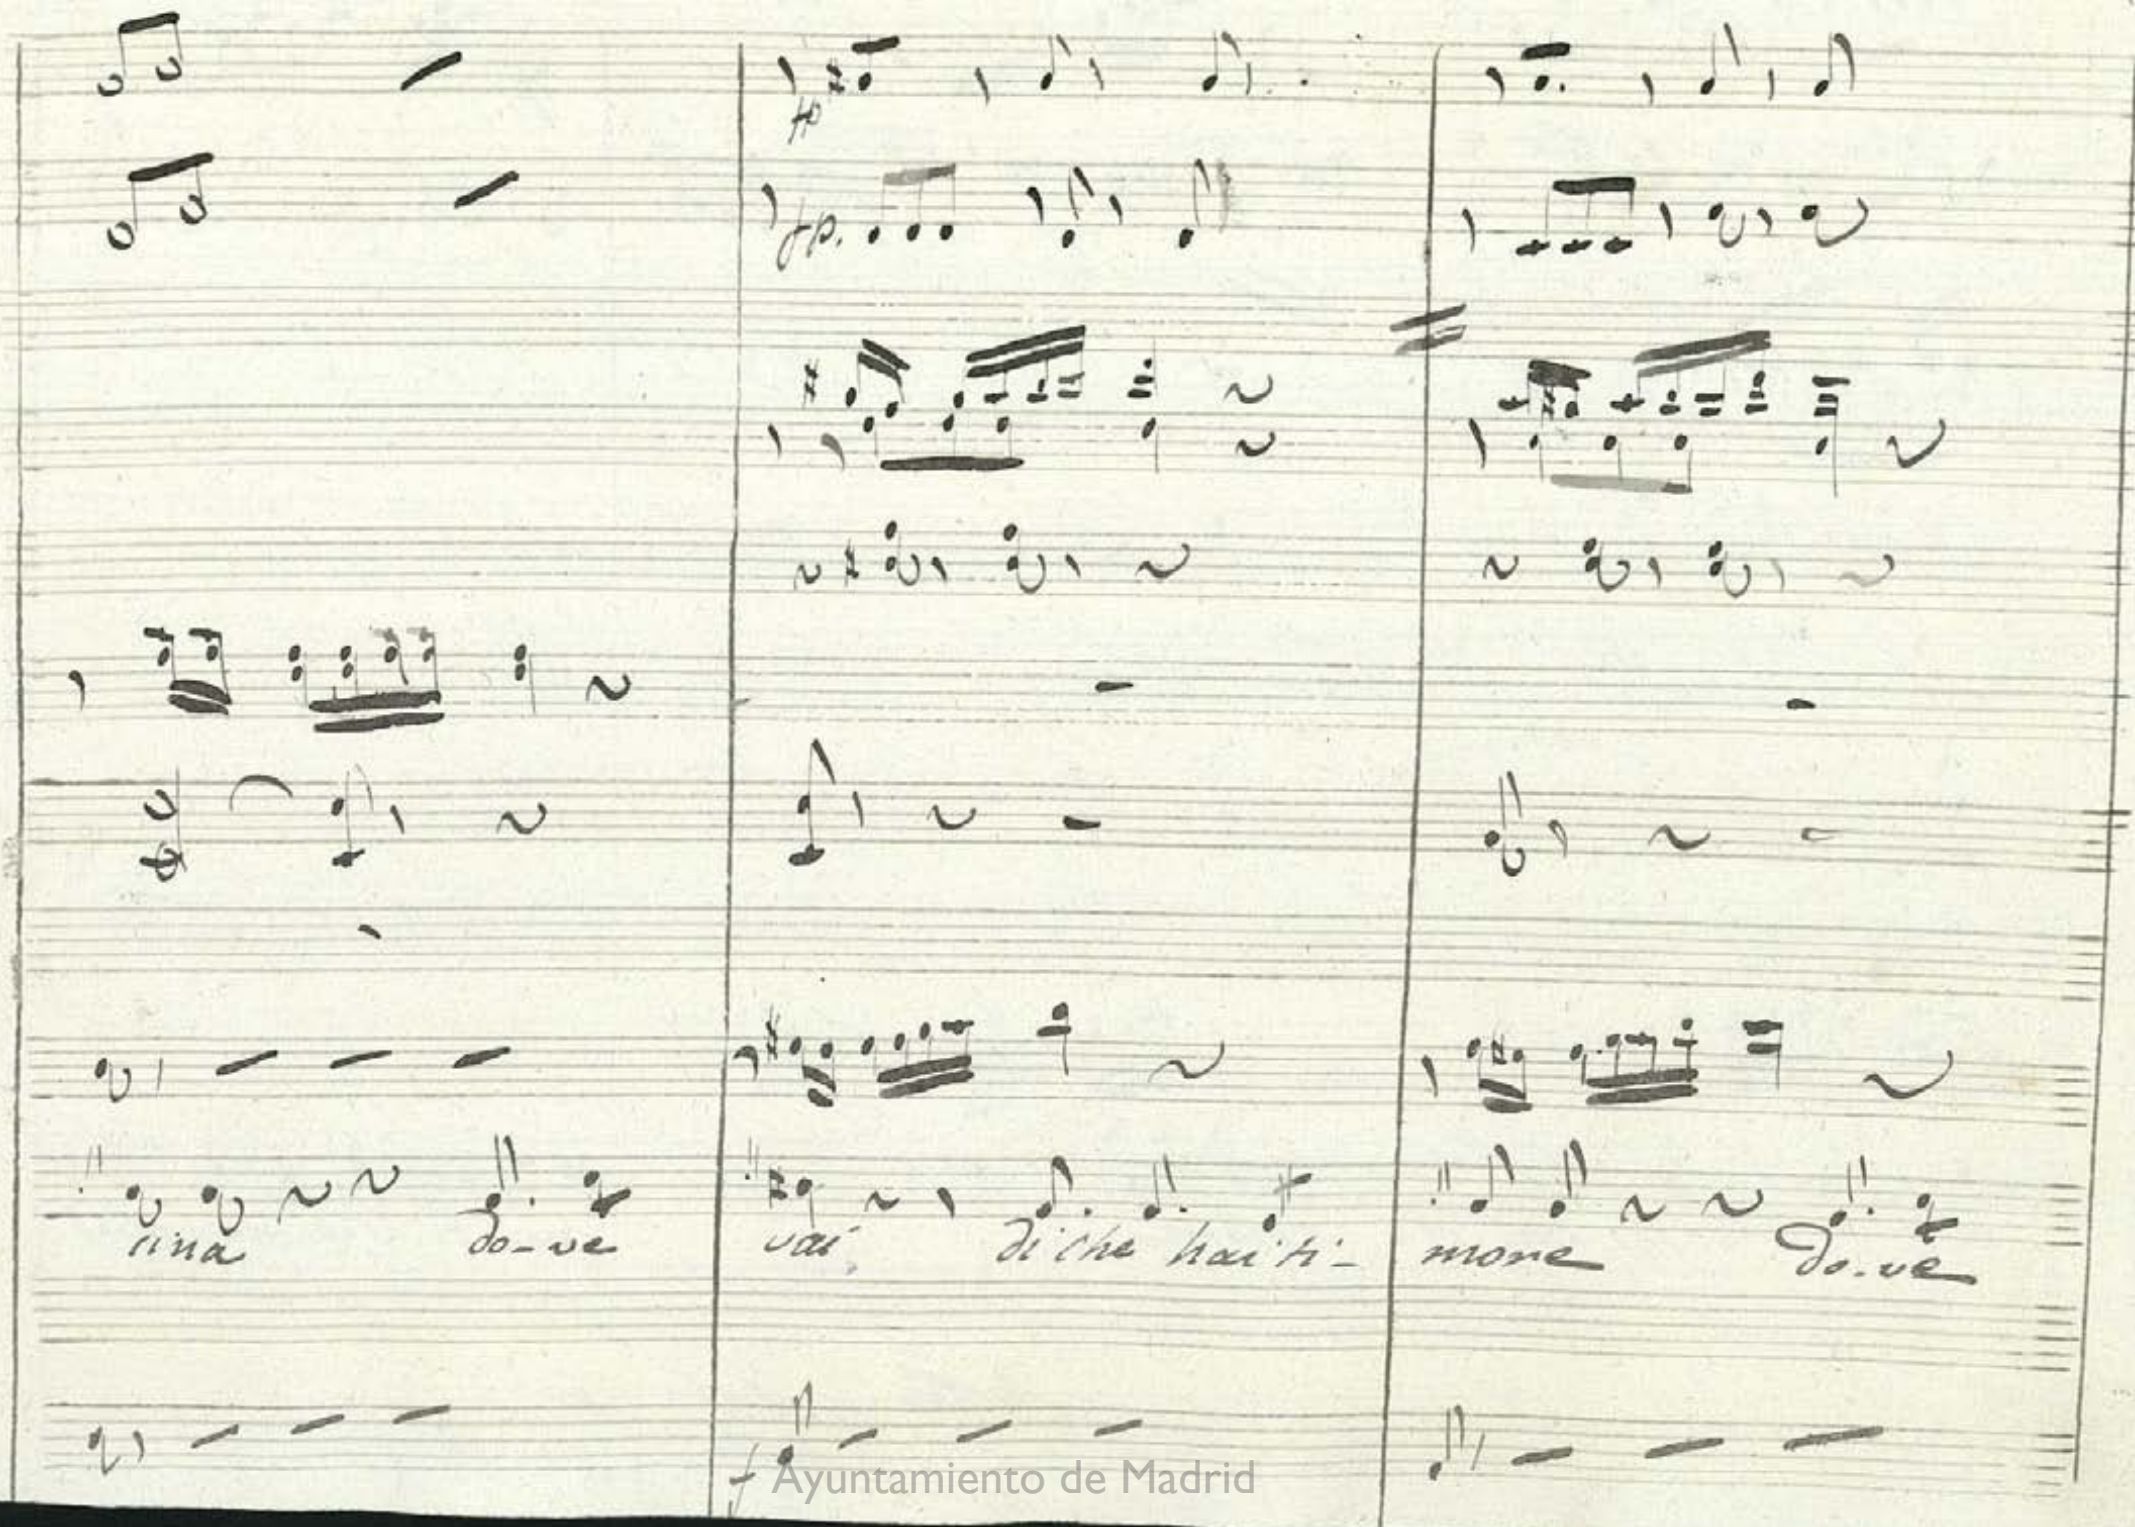 fp
fp.
cina do-ve vai di che hai ti- more do-ve
f
Ayuntamiento de Madrid